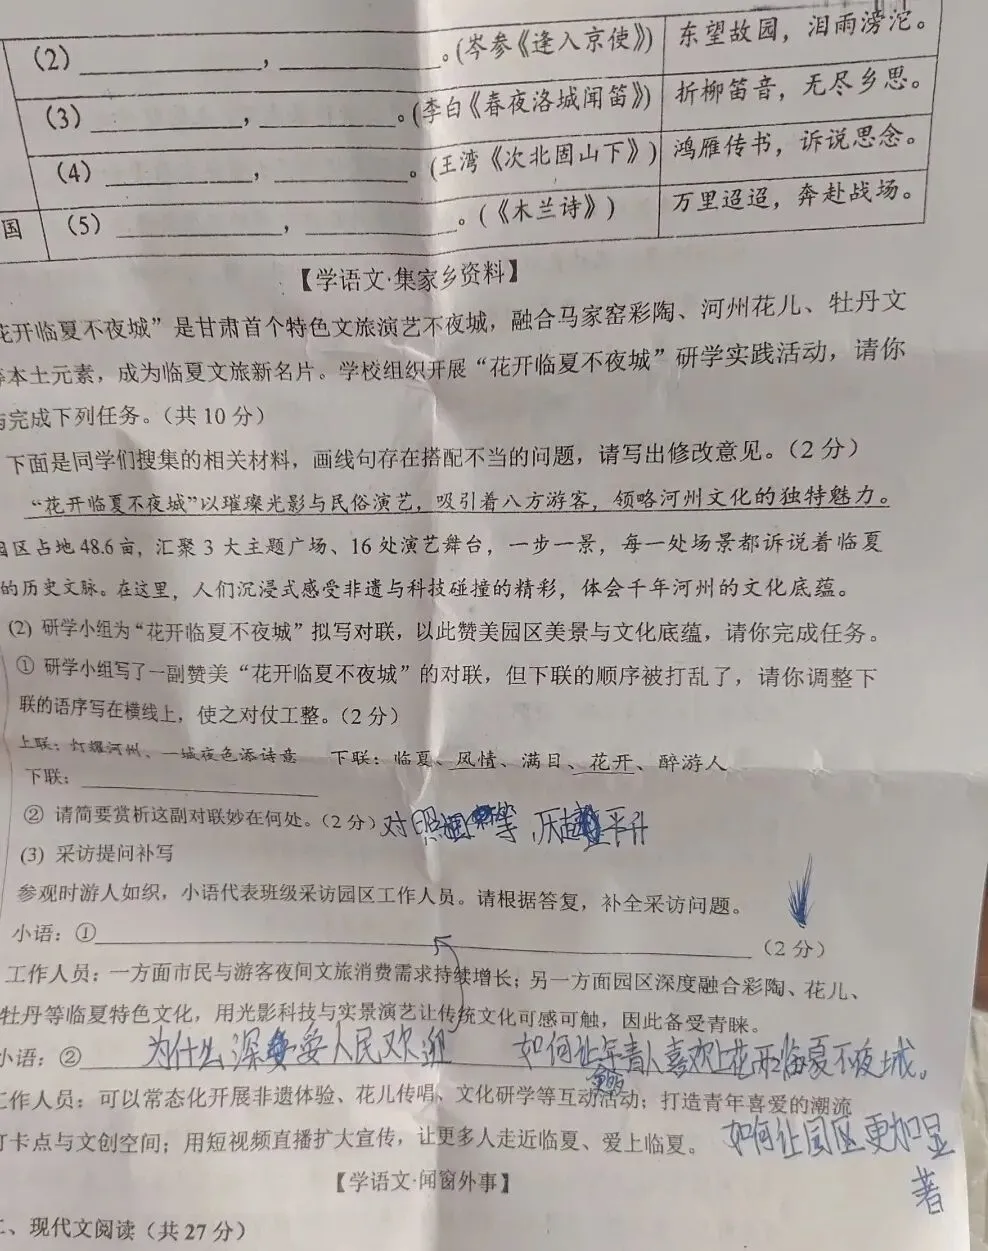 (2) ，。(岑参《逢入京使》) 东望故园，泪雨滂沱。
(3) ，。(李白《春夜洛城闻笛》) 折柳笛音，无尽乡思。
(4) ，。(王湾《次北固山下》) 鸿雁传书，诉说思念。
国 (5) ，。(《木兰诗》) 万里迢迢，奔赴战场。
【学语文·集家乡资料】
花开临夏不夜城”是甘肃首个特色文旅演艺不夜城，融合马家窑彩陶、河州花儿、牡丹文
等本土元素，成为临夏文旅新名片。学校组织开展“花开临夏不夜城”研学实践活动，请你
与完成下列任务。（共 10 分）
下面是同学们搜集的相关材料，画线句存在搭配不当的问题，请写出修改意见。（2 分）
“花开临夏不夜城”以璀璨光影与民俗演艺，吸引着八方游客，领略河州文化的独特魅力。
园区占地 48.6 亩，汇聚 3 大主题广场、16 处演艺舞台，一步一景，每一处场景都诉说着临夏
的历史文脉。在这里，人们沉浸式感受非遗与科技碰撞的精彩，体会千年河州的文化底蕴。
(2) 研学小组为“花开临夏不夜城”拟写对联，以此赞美园区美景与文化底蕴，请你完成任务。
① 研学小组写了一副赞美“花开临夏不夜城”的对联，但下联的顺序被打乱了，请你调整下
联的语序写在横线上，使之对仗工整。（2 分）
上联：灯耀河州、一城夜色添诗意 下联：临夏、风情、满目、花开、醉游人
下联：
② 请简要赏析这副对联妙在何处。（2 分）对
平升
(3) 采访提问补写
参观时游人如织，小语代表班级采访园区工作人员。请根据答复，补全采访问题。
小语：① （2 分）
工作人员：一方面市民与游客夜间文旅消费需求持续增长；另一方面园区深度融合彩陶、花儿、
牡丹等临夏特色文化，用光影科技与实景演艺让传统文化可感可触，因此备受青睐。
小语：② 为什么深受人民欢迎 如何让年青人喜欢上花开临夏不夜城。
工作人员：可以常态化开展非遗体验、花儿传唱、文化研学等互动活动；打造青年喜爱的潮流
打卡点与文创空间；用短视频直播扩大宣传，让更多人走近临夏、爱上临夏。 如何让园区更加显
著
【学语文·闻窗外事】
二、现代文阅读（共 27 分）